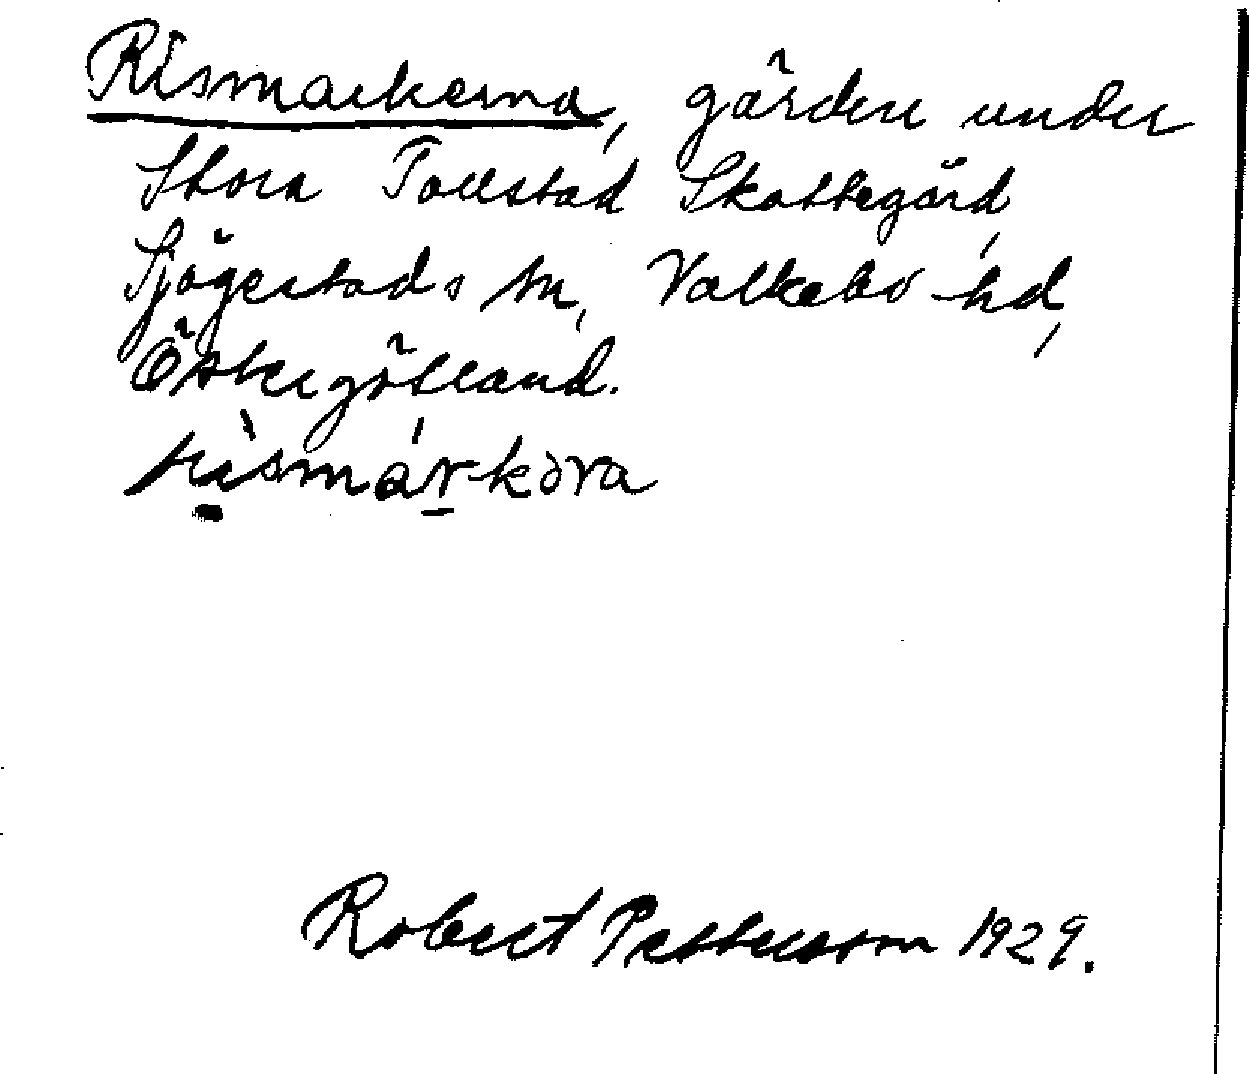 Rismarkerna, gärden under
Stora Tollstad Skattegård,
Sjögestads sn, Valkebo hd,
Östergötland.
rìsmárkəra
Robert Pettersson 1929.